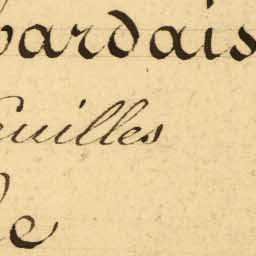 bardais
euilles
de